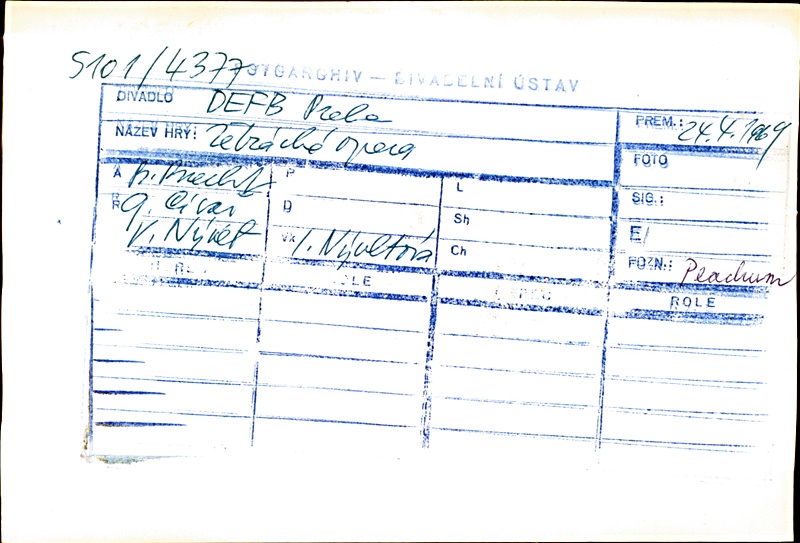 S101/4377
FOTOARCHIV — DIVADELNÍ ÚSTAV
DIVADLO DEFB Praha
PREM.: 24.4.1969
NÁZEV HRY: Žebrácká opera
FOTO
A B. Brecht
P
L
SIG.:
R
D
Sh
E/
V. Nývlt
Vk J. Nývltová
Ch
POZN.: Peachum
ROLE
ROLE